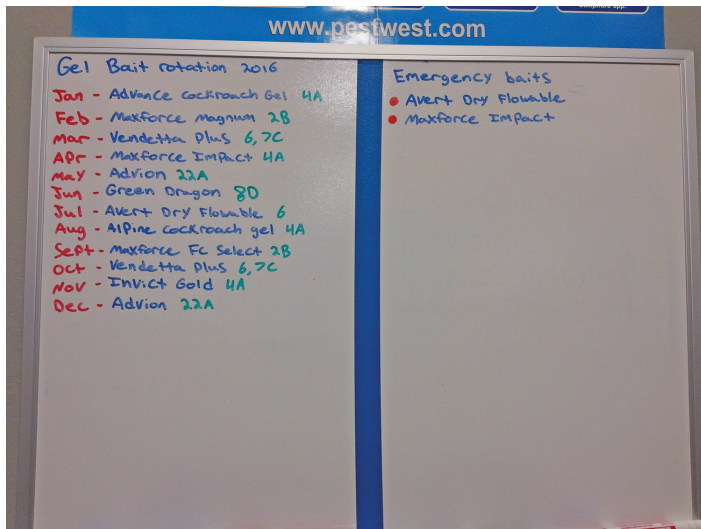 www.pestwest.com
Gel Bait rotation 2016
Jan - Advance Cockroach Gel 4A
Feb - Maxforce Magnum 2B
Mar - Vendetta Plus 6,7C
Apr - Maxforce Impact 4A
May - Advion 22A
Jun - Green Dragon 8D
Jul - Avert Dry Flowable 6
Aug - Alpine cockroach gel 4A
Sept - Maxforce Fc Select 2B
Oct - Vendetta Plus 6,7C
Nov - Invict Gold 4A
Dec - Advion 22A
Emergency baits
• Avert Dry Flowable
• Maxforce Impact